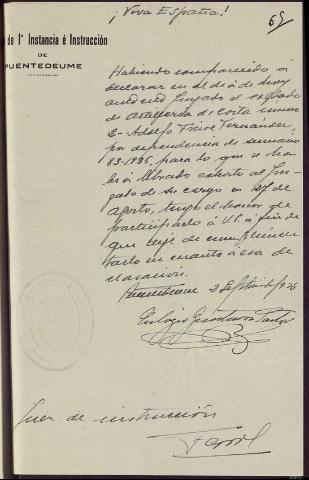 ¡Viva España!
65
de 1ª Instancia é Instrucción
DE
PUENTEDEUME
Habiendo comparecido á
declarar en el día de hoy
ante este Juzgado el soldado
de Artillería de Costa núm.
2- Adolfo Fernández,
por dependencia de sumario
83-1936, para lo que se ha-
bía librado exhorto al Juz-
gado de su cargo en 27 de
Agosto, tengo el honor de
participarlo á US. á fin de
que deje de cumplimen-
tarlo en cuanto á esa de-
claración.
Puentedeume 2 Septiembre 936
Eulogio
Juez de instrucción
Ferrol